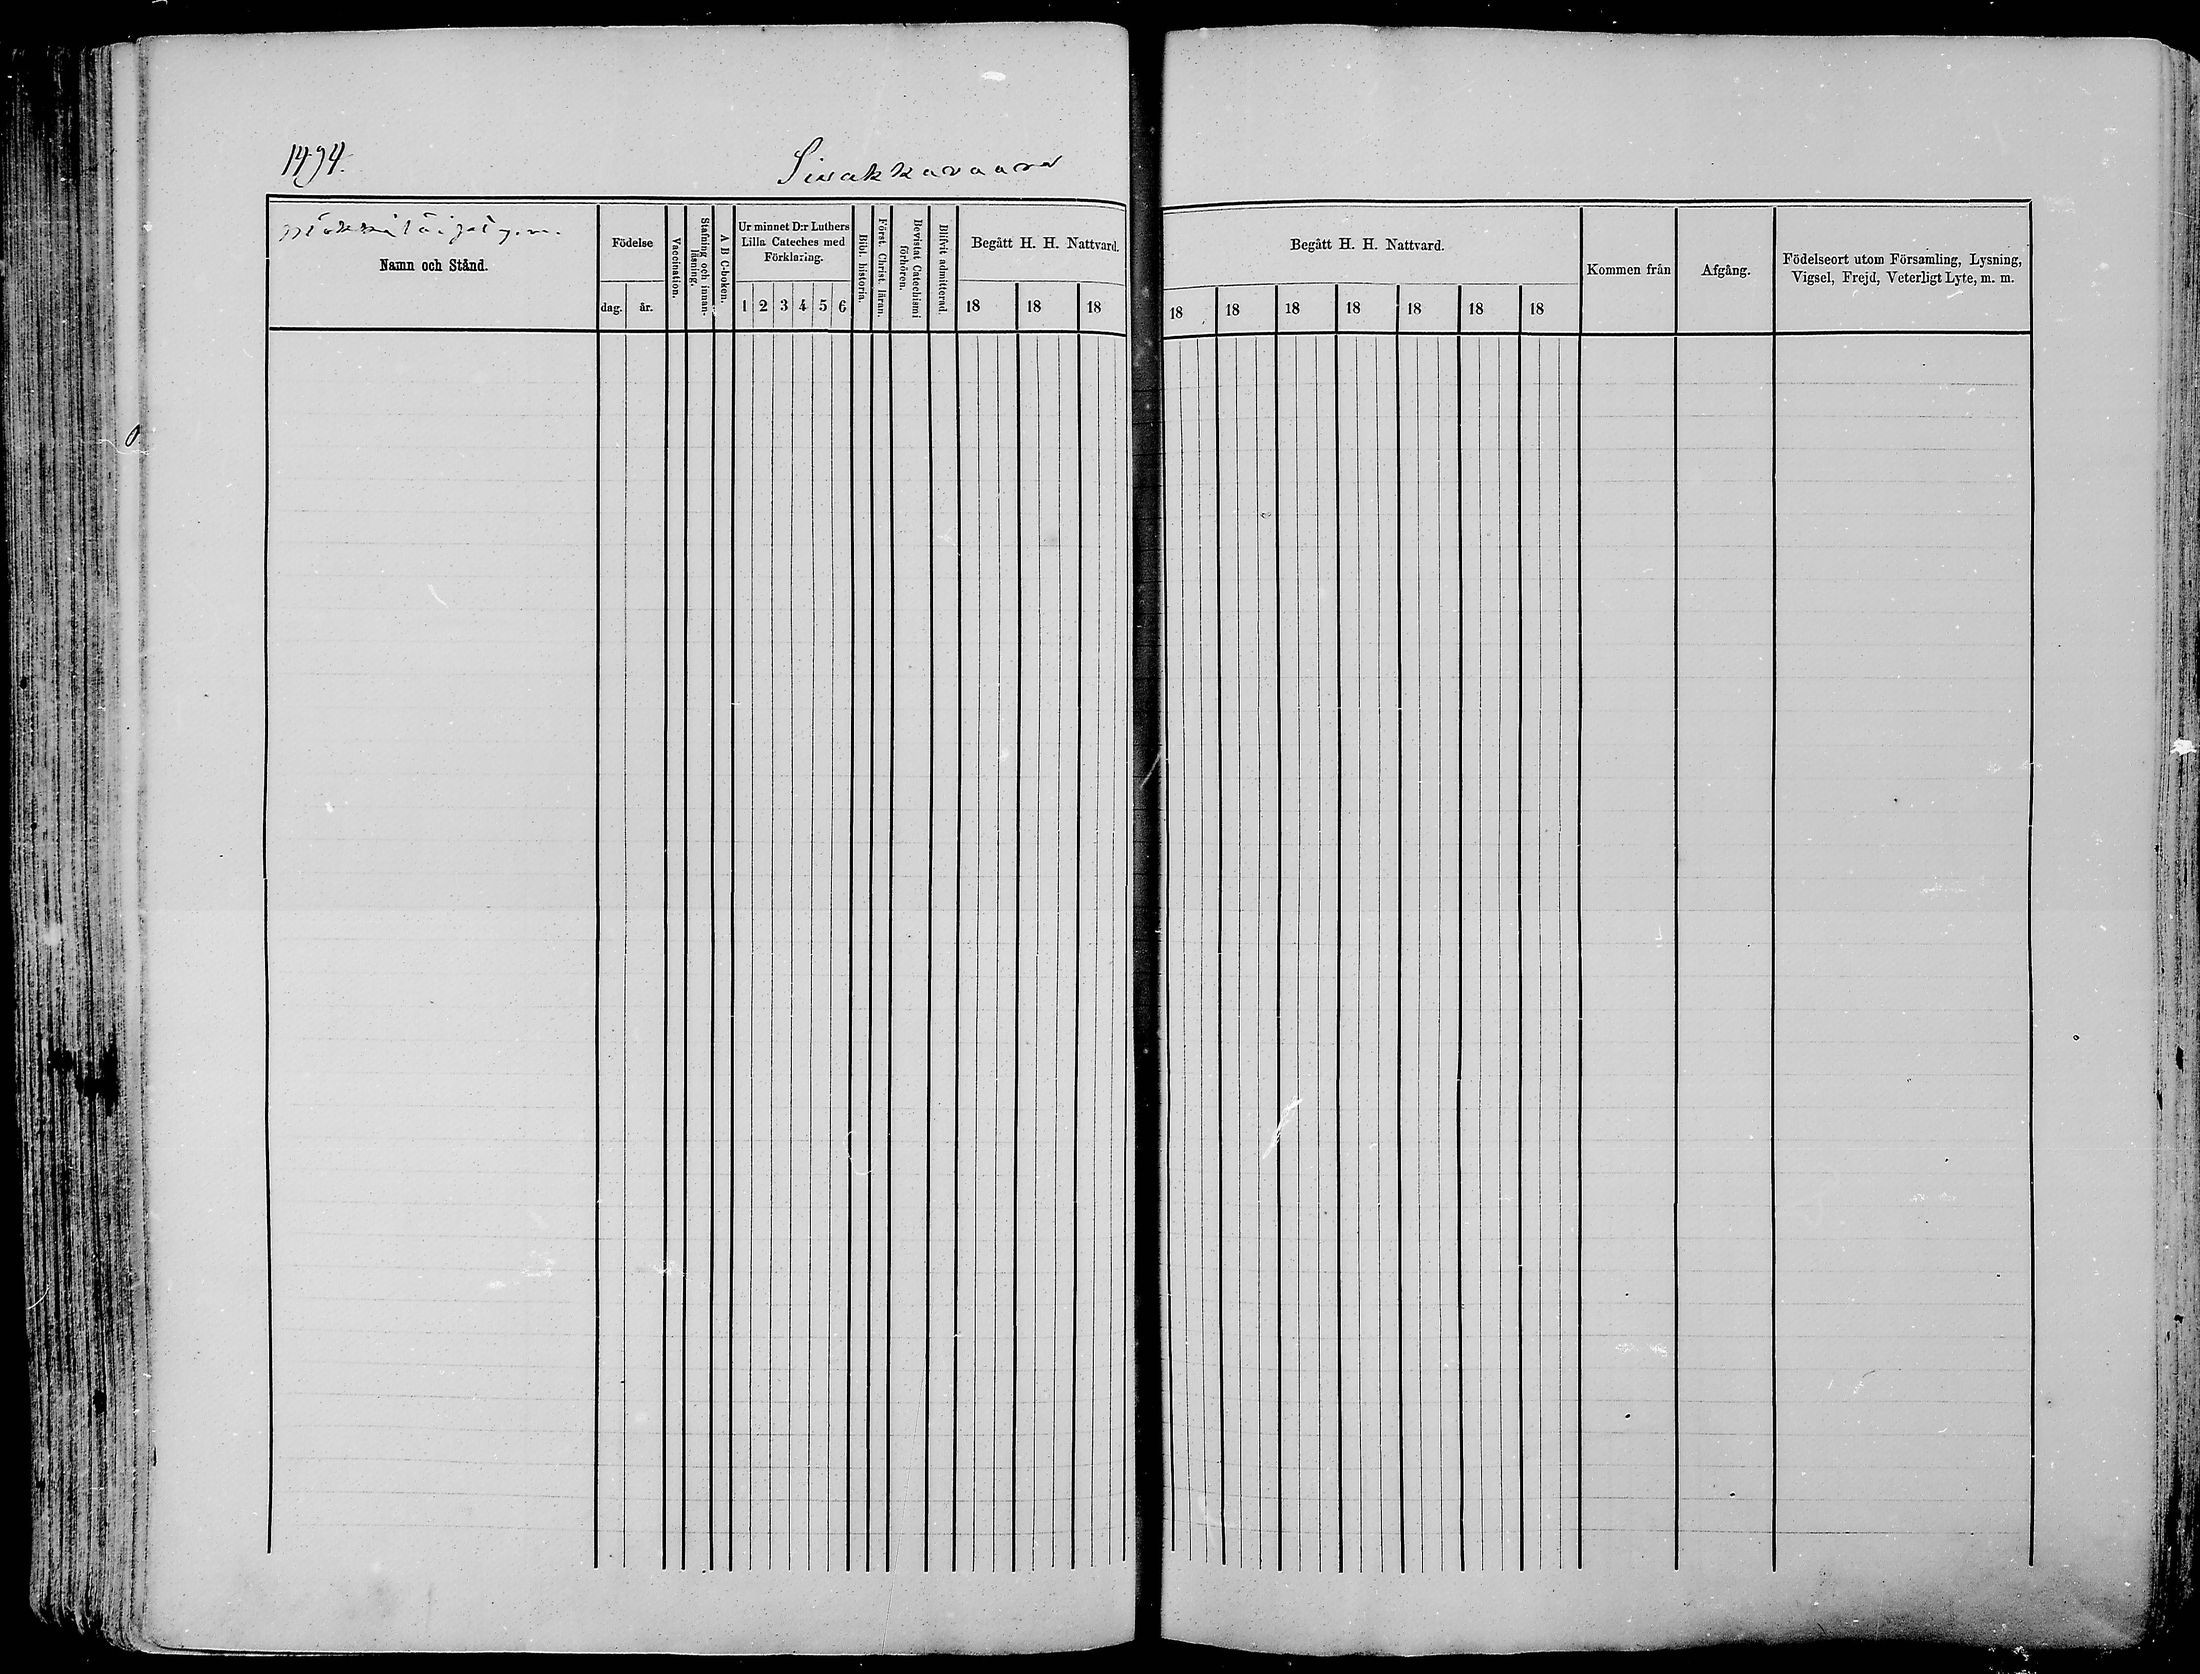 1494.
Sivakkavaara
Namn och Stånd.
Födelse
dag.
år.
Vaccination.
Stafning och innan-
läsning.
A B C-boken.
Ur minnet D:r Luthers
Lilla Cateches med
Förklaring.
1 2 3 4 5 6
Bibl. historia.
Först. Christ. läran.
Bevistat Catechismi
förhören.
Blifvit admitterad.
Begått H. H. Nattvard.
18 18 18
Begått H. H. Nattvard.
18 18 18 18 18 18 18
Kommen från
Afgång.
Födelseort utom Församling, Lysning,
Vigsel, Frejd, Veterligt Lyte, m. m.